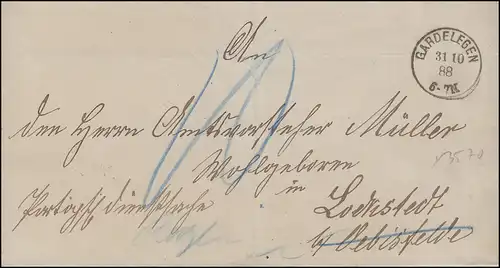 An
GARDELEGEN
31 10
88
6-7N
den Herrn Amtsvorsteher Müller
Wohlgeboren
in
Lockstedt
b/ Oebisfelde
Portopfl. Dienstsache